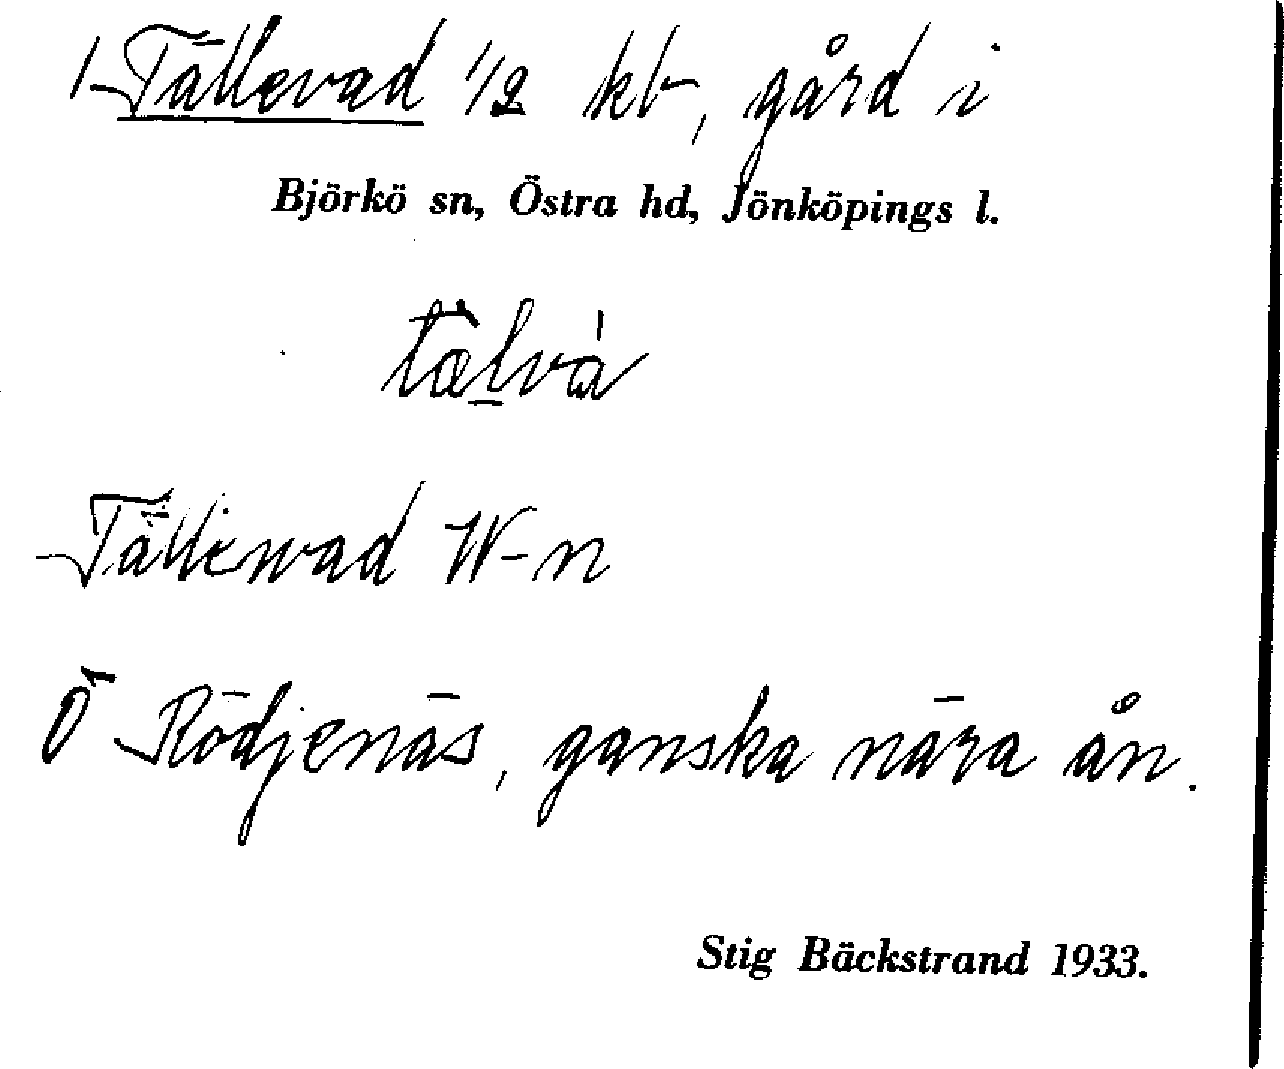 1 Tällevad 1/2 kb, gård i
Björkö sn, Östra hd, Jönköpings l.
Tällewad W-n
Ö Rödjenäs, ganska nära ån.
Stig Bäckstrand 1933.